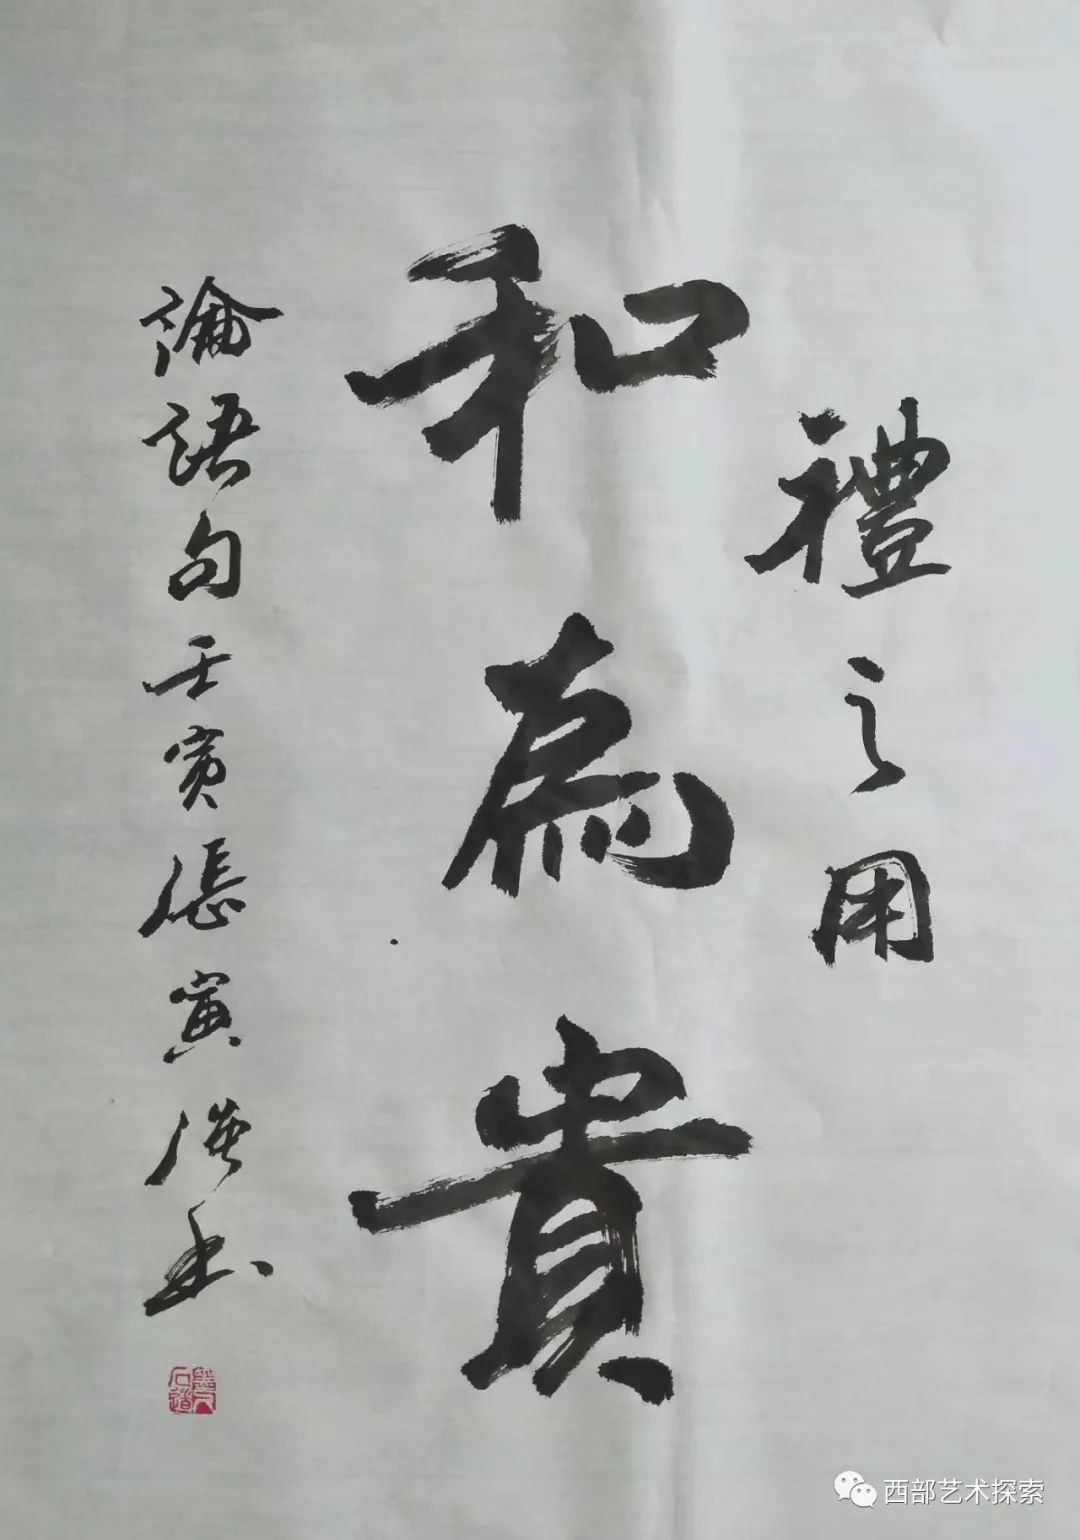 禮之用
和為貴
論語句壬寅張寅漢書
西部艺术探索